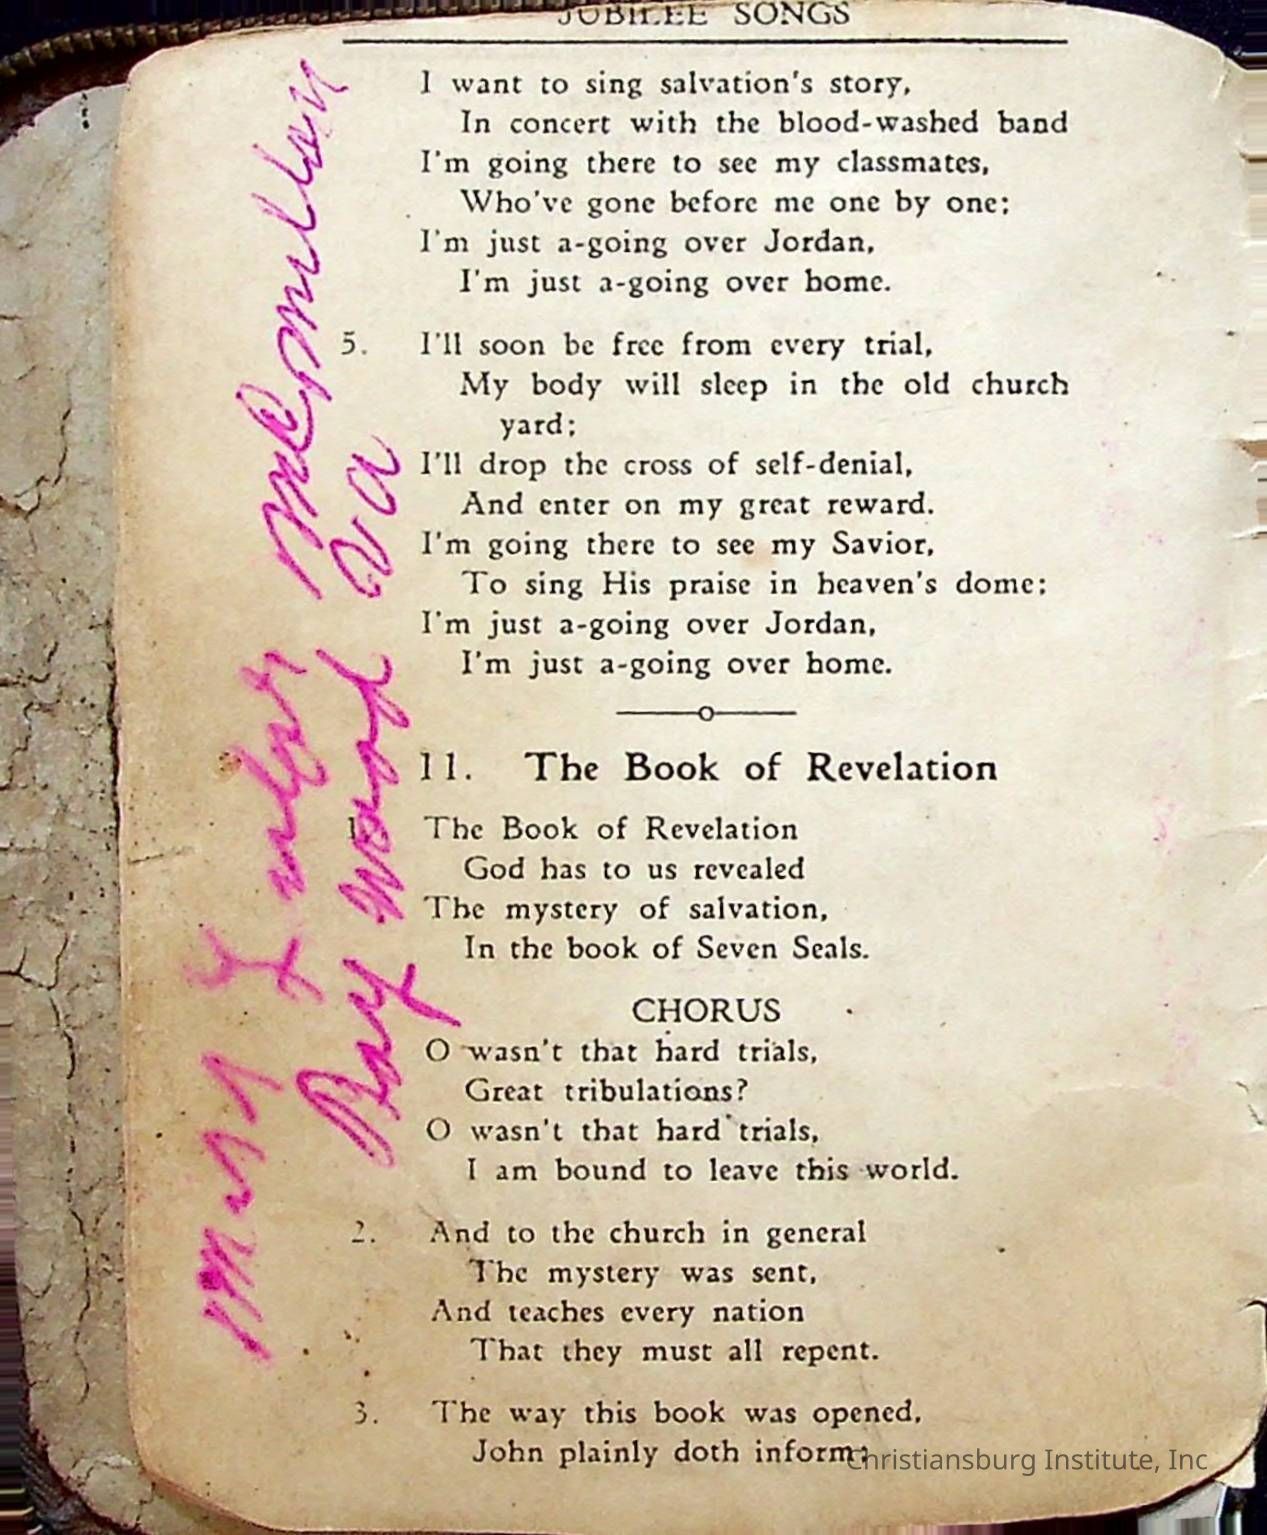 JUBILEE SONGS
I want to sing salvation's story,
In concert with the blood-washed band
I'm going there to see my classmates,
Who've gone before me one by one;
I'm just a-going over Jordan,
I'm just a-going over home.
5. I'll soon be free from every trial,
My body will sleep in the old church
yard;
I'll drop the cross of self-denial,
And enter on my great reward.
I'm going there to see my Savior,
To sing His praise in heaven's dome;
I'm just a-going over Jordan,
I'm just a-going over home.
11. The Book of Revelation
1. The Book of Revelation
God has to us revealed
The mystery of salvation,
In the book of Seven Seals.
CHORUS
O wasn't that hard trials,
Great tribulations?
O wasn't that hard trials,
I am bound to leave this world.
2. And to the church in general
The mystery was sent,
And teaches every nation
That they must all repent.
3. The way this book was opened,
John plainly doth inform:
Va
Christiansburg Institute, Inc